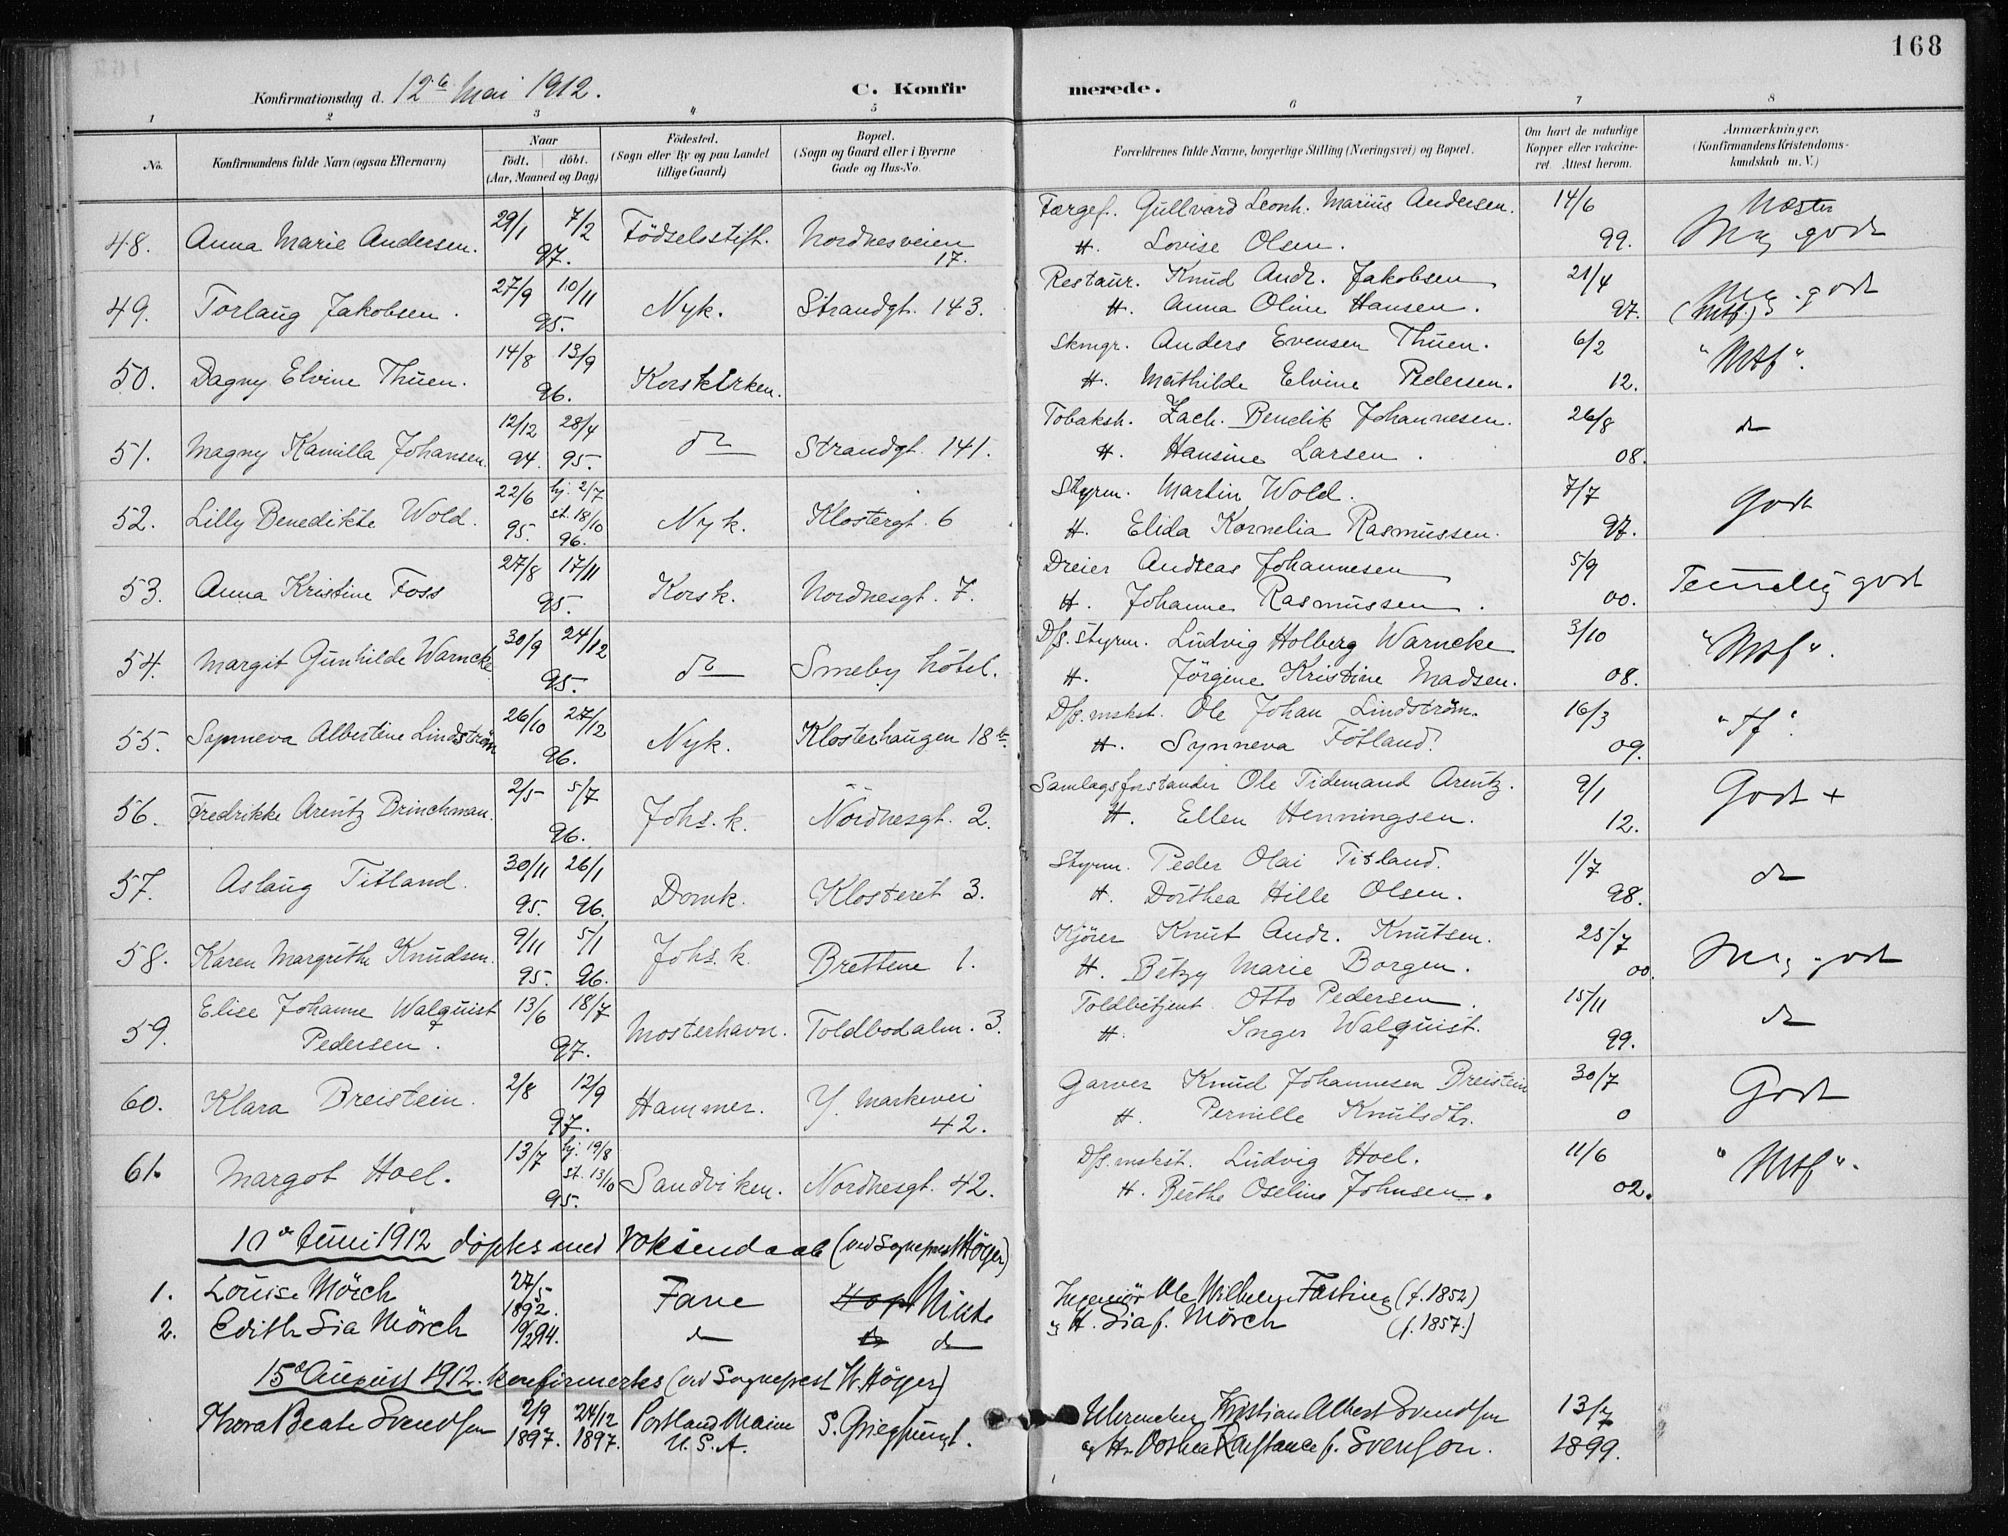 168
Konfirmationsdag d. 12te Mai 1912.
C. Konfirmerede.
1 2 3 4 5 6 7 8
No.
Konfirmandens fulde Navn (ogsaa Efternavn)
Naar
födt. döbt.
(Aar, Maaned og Dag)
Födested.
(Sogn eller By og paa Landet
tillige Gaard)
Bopæl.
(Sogn og Gaard eller i Byerne
Gade og Hus-No.
Forældrenes fulde Navne, borgerlige Stilling (Næringsvei) og Bopæl.
Om havt de naturlige
Kopper eller vakcine-
ret. Attest herom.
Anmærkninger.
(Konfirmandens Kristendoms-
kundskab m. V.)
48. Anna Marie Andersen. 29/1 7/2 97. Födselsstift. Nordnesveien 17. Færgef. Gullvard Leonh. Marius Andersen. 14/6 Næsten
H. Lovise Olsen. 99. Meg godt
49. Torlaug Jakobsen. 27/9 10/11 95. Nyk. Strandgt. 143. Restaur. Knud Andr. Jakobsen 21/4 Meg godt
H. Anna Oline Hansen. 97. (Mtf.)
50. Dagny Elvine Thuen. 14/8 13/9 96. Korskirken. Skmgr. Anders Evensen Thuen. 6/2 "Mtf".
H. Mathilde Elvine Pedersen. 12.
51. Magny Kamilla Johansen. 12/12 94. 28/4 95. do Strandgt. 141. Tobaksh. Zach. Bendik Johannesen. 26/8 do
H. Hansine Larsen. 08.
52. Lilly Benedikte Wold. 22/6 95. hj. 2/7 st. 18/10 96. Nyk. Klostergt. 6 Styrm. Martin Wold. 7/7 Godt
H. Elida Kornelia Rasmussen. 97.
53. Anna Kristine Foss 27/8 17/11 95. Korsk. Nordnesgt. 7. Dreier Andreas Johannesen 5/9 Temmelig godt
H. Johanne Rasmussen. 00.
54. Margit Gunhilde Warncke 30/9 24/12 95. do Smeby hotel. Dfs. styrm. Ludvig Holberg Warncke 3/10 "Mtf".
H. Jörgine Kristine Madsen. 08.
55. Synneva Albertine Lindström 26/10 27/12 96. Nyk. Klosterhaugen 18 Dfs. mskst. Ole Johan Lindström. 16/3 "Tf".
H. Synneva Fotland. 09.
56. Fredrikke Arentz Brinchman. 2/5 5/7 96. Johs. k. Nordnesgt. 2. Samlagsforstander Ole Tidemand Arentz. 9/1 Godt +
H. Ellen Henningsen. 12.
57. Aslaug Titland. 30/11 95. 26/1 96. Domk. Klosteret 3. Styrm. Peder Olai Titland. 1/7 do
H. Dorthea Hille Olsen. 98.
58. Karen Margrethe Knudsen. 9/11 95. 5/1 96. Johs. k. Brettene 1. Kjörer Knut Andr. Knutsen. 25/7 Meg godt
H. Betzy Marie Borgen. 00.
59. Elise Johanne Walquist
Pedersen. 13/6 18/7 97. Mosterhavn. Toldbodalm. 3. Toldbetjent Otto Pedersen. 15/11 do
H. Inger Walquist. 99.
60. Klara Breistein. 2/8 12/9 97. Hammer. Y. Markevei 42. Garver Knud Johannesen Breistein 30/7 Godt
H. Pernille Knutsdtr. 0
61. Margot Hoel. 13/7 hj. 19/8 st. 13/10 95. Sandviken. Nordnesgt. 42. Dfs. mskst. Ludvig Hoel. 11/6 "Mtf".
H. Berthe Oseline Johnsen. 02.
Juni 1912 döptes med voksendaab (ved Sogneprest Höyer)
1. Louise Mörch 27/5 1892. Fane Hop Minde Ingeniör Ole Wilhelm Fasting (f. 1852)
2. Edith Sia Mörch 94. do do do H. Sia f. Mörch (f. 1857.)
15de August 1912. konfirmertes (ved Sogneprest W. Höyer)
Thora Beate Svendsen 2/9 1897. 24/12 1897. Portland Maine U. S. A. Kristian Albert Svendsen 13/7
og H. f. Svenson. 1899.